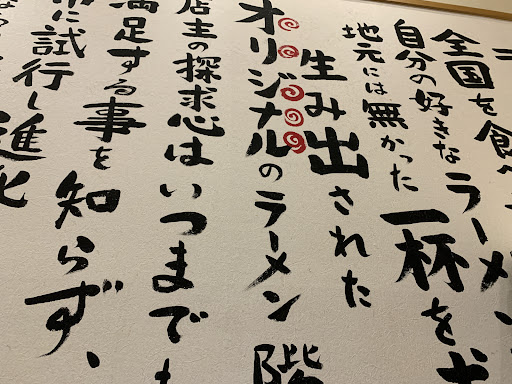 ラー
全国を食べ
自分の好きなラーメン
地元には無かった一杯を
生み出された
オリジナルのラーメン 階
店主の探求心はいつまでも
満足する事を知らず、
に試行し進化